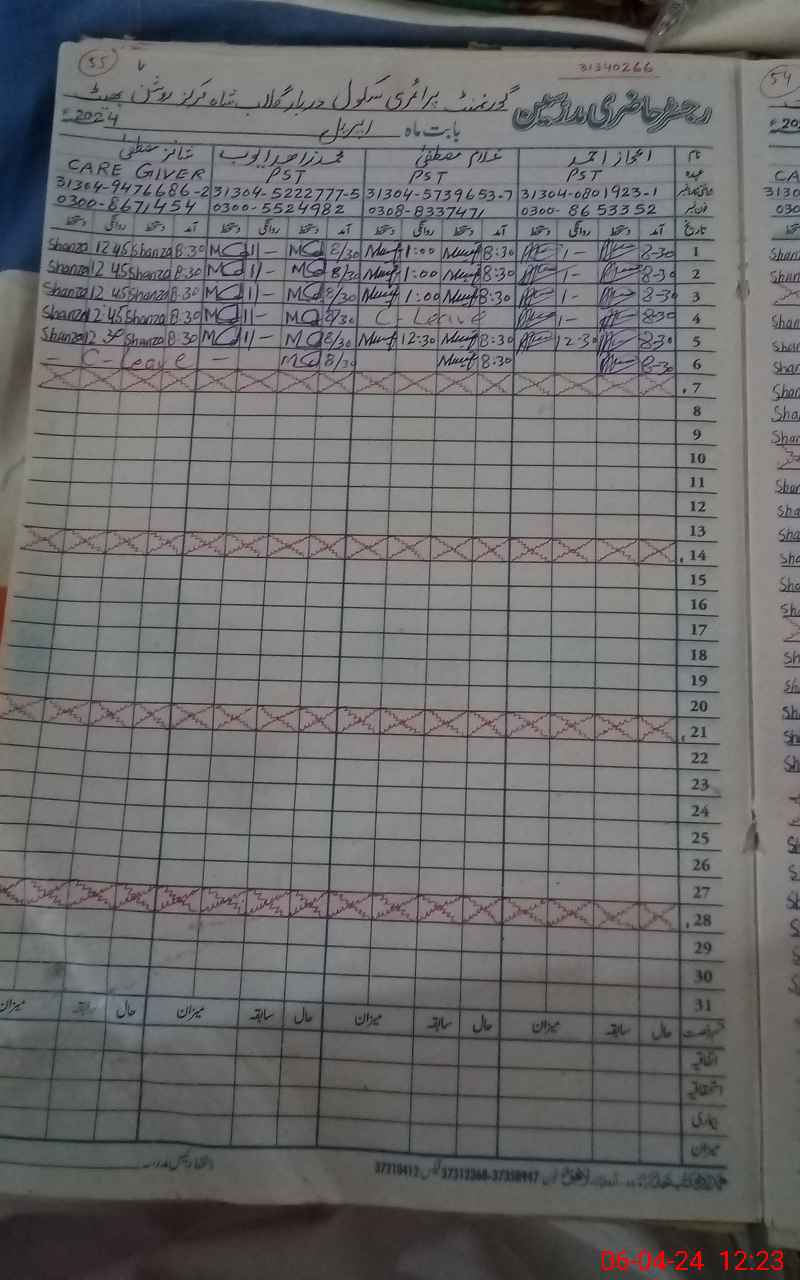 55
31340266
54
رجسٹر حاضری مدرسین گورنمنٹ پرائمری سکول دربار گلاب شاہ مرکز روشن بھیٹ
بابت ماہ اپریل 2024ء
نام اعجاز احمد غلام مصطفیٰ محمد زاہد ایوب شانزہ مصطفیٰ
عہدہ PST PST PST CARE GIVER
31304-0801923-1 31304-5739653-7 31304-5222777-5 31304-9476686-2
فون نمبر 0300-8653352 0308-8337471 0300-5524982 0300-8671454
تاریخ آمد دستخط روانگی دستخط آمد دستخط روانگی دستخط آمد دستخط روانگی دستخط آمد دستخط روانگی دستخط
1 8-30 1- 8:30 1:00 8/30 1- 8:30 Shanza 12 45 Shanza
2 8-30 1- 8:30 1:00 8/30 1- 8:30 Shanza 12 45 Shanza
3 8-30 1- 8:30 1:00 8/30 1- 8:30 Shanza 12 45 Shanza
4 8-30 1- C-Leave 8/30 1- 8:30 Shanza 12:45 Shanza
5 8-30 12-30 8:30 12:30 8/30 1- 8:30 Shanza 12 30 Shanza
6 8-30 8:30 8/30 - C-Leave -
7
8
9
10
11
12
13
14
15
16
17
18
19
20
21
22
23
24
25
26
27
28
29
30
31
حال سابقہ میزان حال سابقہ میزان حال سابقہ میزان حال سابقہ میزان
اتفاقیہ
استحقاقیہ
بیماری
میزان
37312368-37358947 37210412
06-04-24 12:23